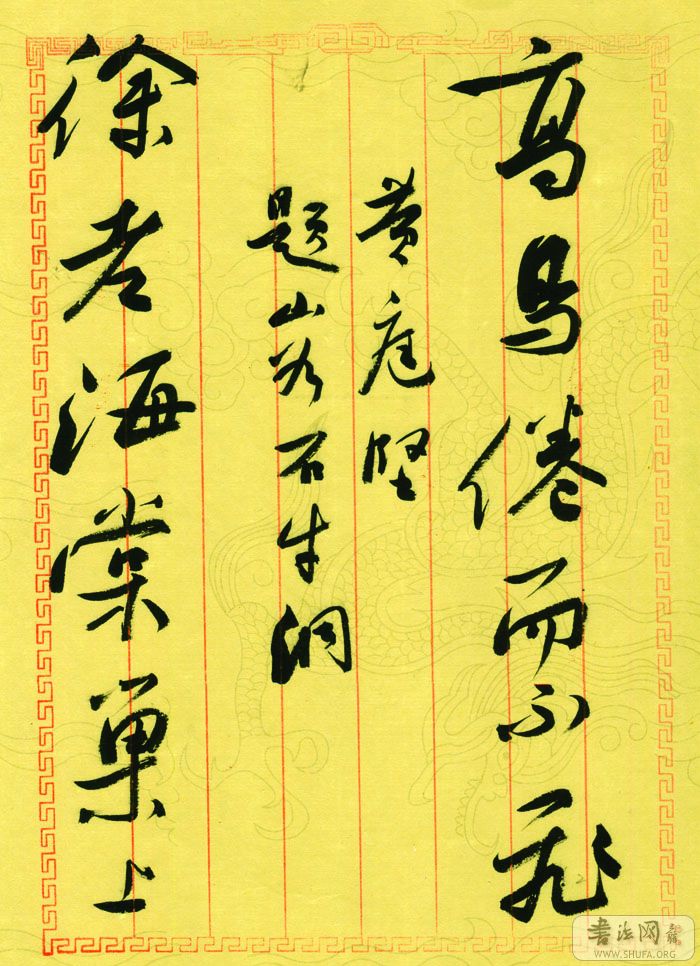 高鸟倦而不飛
黄庭坚
题山谷石牛洞
徐老海棠巢上
書法网
WWW.SHUFA.ORG